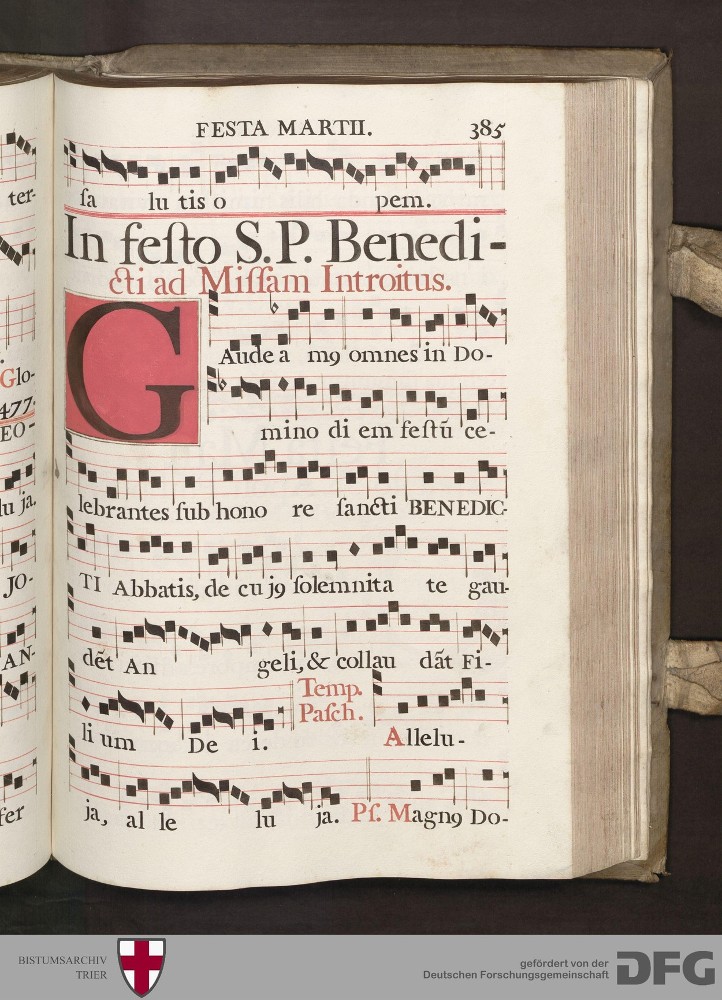 FESTA MARTII. 385
ter-
sa lu tis o pem.
In festo S. P. Benedi-
cti ad Missam Introitus.
GAude a m9 omnes in Do-
mino di em festū ce-
lebrantes sub hono re sancti BENEDIC-
TI Abbatis, de cu j9 solemnita te gau-
dēt An geli, & collau dāt Fi-
li um De i.
Temp.
Pasch.
Allelu-
ja, al le lu ja. Ps. Magn9 Do-
.
Glo-
477.
EO-
lu ja.
JO-
AN-
fer
BISTUMSARCHIV
TRIER
gefördert von der
Deutschen Forschungsgemeinschaft
DFG